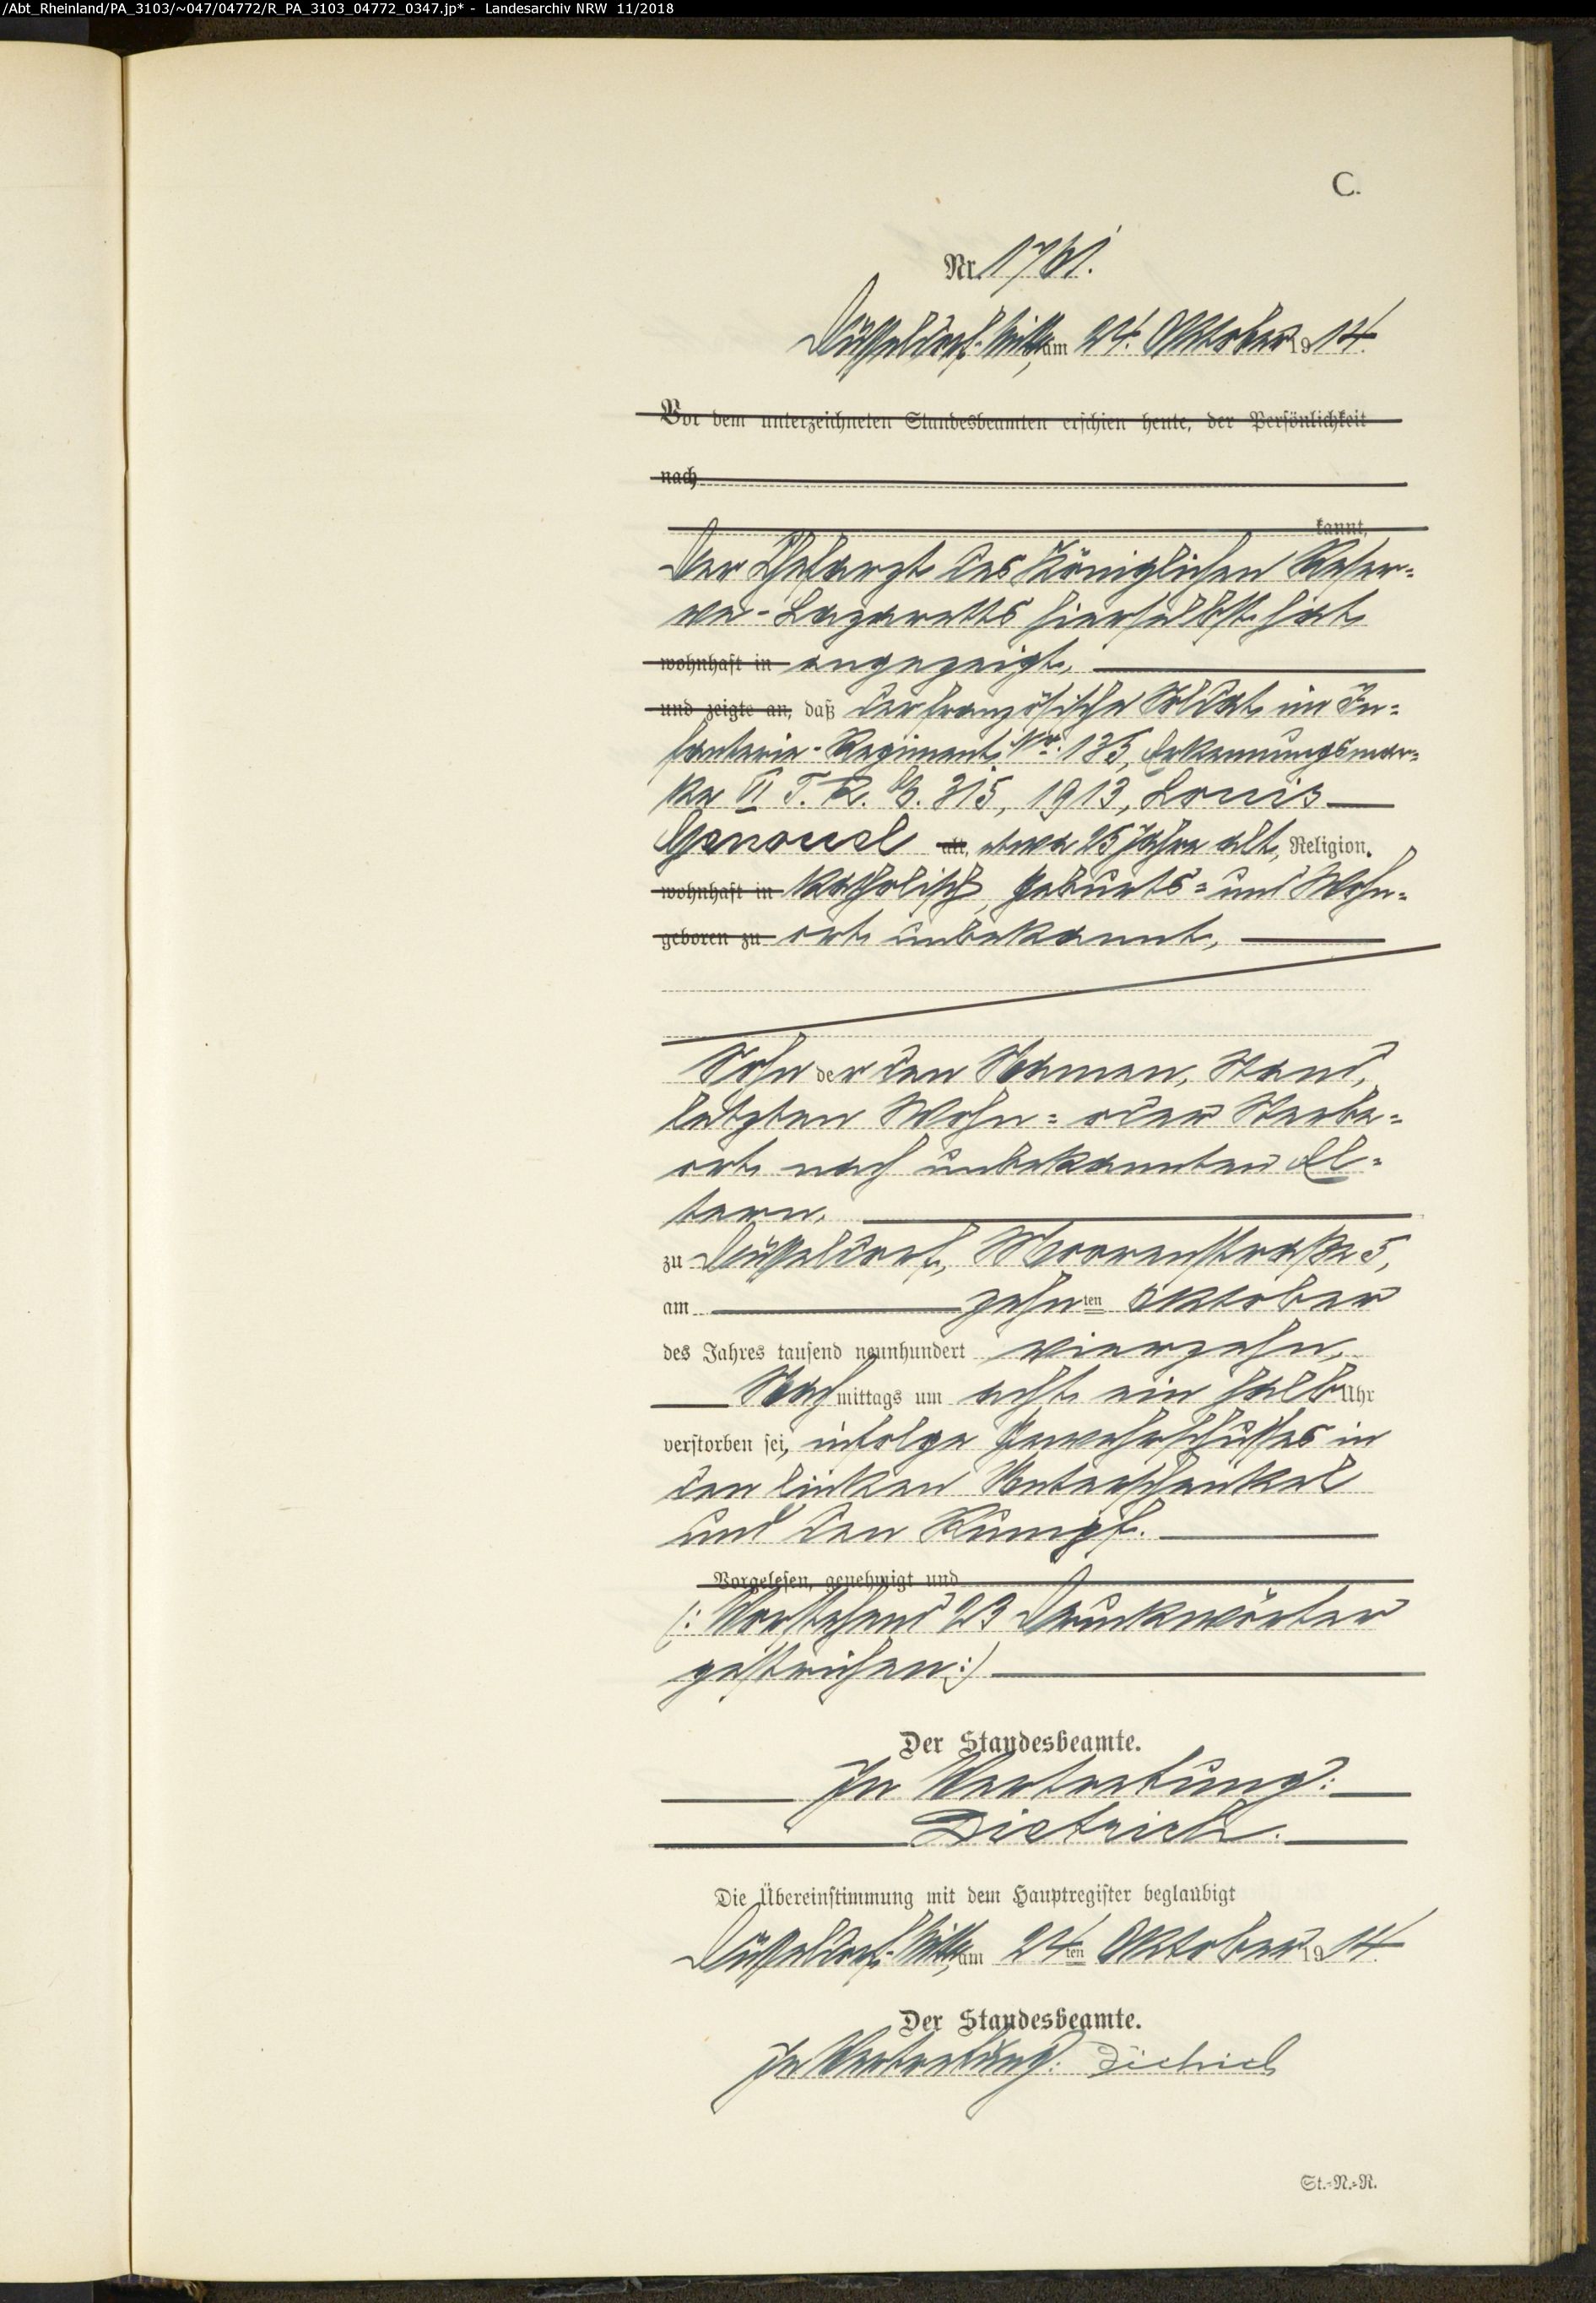 /Abt_Rheinland/PA_3103/~047/04772/R_PA_3103_04772_0347.jp* - Landesarchiv NRW 11/2018
C.
Nr. 1761.
Düsseldorf-Mitte, am 24. Oktober 1914.
Vor dem unterzeichneten Standesbeamten erschien heute, der Persönlichkeit
nach
kannt,
Der Chefarzt des Königlichen Reser-
ve-Lazaretts hierselbst hat
wohnhaft in angezeigt,
und zeigte an, daß der französische Soldat im In-
fanterie-Regiment Nr. 135, Erkennungsmar-
ke 315, 1913, Louis
Genouel alt, etwa 25 Jahre alt, Religion.
wohnhaft in katholisch, Geburts- und Wohn-
geboren zu ort unbekannt,
Sohn der den Namen, Stand,
letzten Wohn- oder Sterbe-
ort nach unbekannten El-
tern,
zu Düsseldorf, Moorenstraße 5,
am zehnten Oktober
des Jahres tausend neunhundert vierzehn,
Nachmittags um acht ein halb Uhr
verstorben sei, infolge Gewehrschusses in
den linken Unterschenkel
und den Rumpf.
Vorgelesen, genehmigt und
(: Vorstehend 23 Druckwörter
gestrichen :)
Der Standesbeamte.
In Vertretung:
Dietrich.
Die Übereinstimmung mit dem Hauptregister beglaubigt
Düsseldorf-Mitte, am 24ten Oktober 1914.
Der Standesbeamte.
In Vertretung: Dietrich
St.-N.-R.